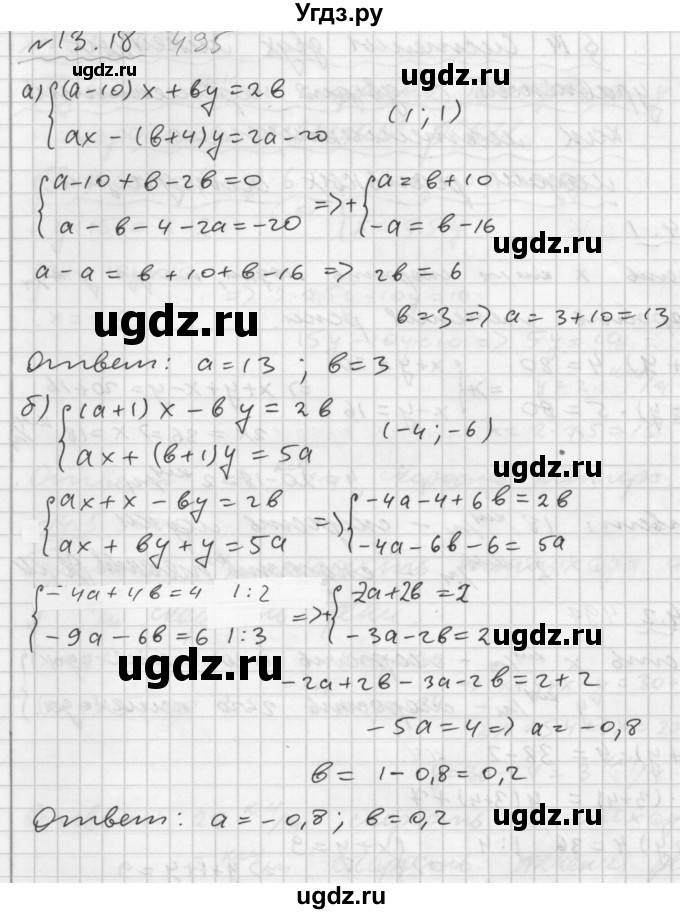 Угдз.ру
№13.18 495
ugdz.ru
а) {(a-10)x+вy=2в
ax-(в+4)y=2a-20
(1; 1)
ugdz.ru
{a-10+в-2в=0
a-в-4-2a=-20
=>+{a=в+10
-a=в-16
ugdz.ru
a-a=в+10+в-16 => 2в=6
ugdz.ru
в=3 => a=3+10=13
Ответ: a=13; в=3
ugdz.ru
б) {(a+1)x-вy=2в
ax+(в+1)y=5a
(-4; -6)
ugdz.ru
{ax+x-вy=2в
ax+вy+y=5a
=>{-4a-4+6в=2в
-4a-6в-6=5a
{-4a+4в=4 |:2
-9a-6в=6 |:3
=>+{-2a+2в=2
-3a-2в=2
ugdz.ru
ugdz.ru
-2a+2в-3a-2в=2+2
-5a=4 => a=-0,8
в=1-0,8=0,2
Ответ: a=-0,8; в=0,2
ugdz.ru
ugdz.ru